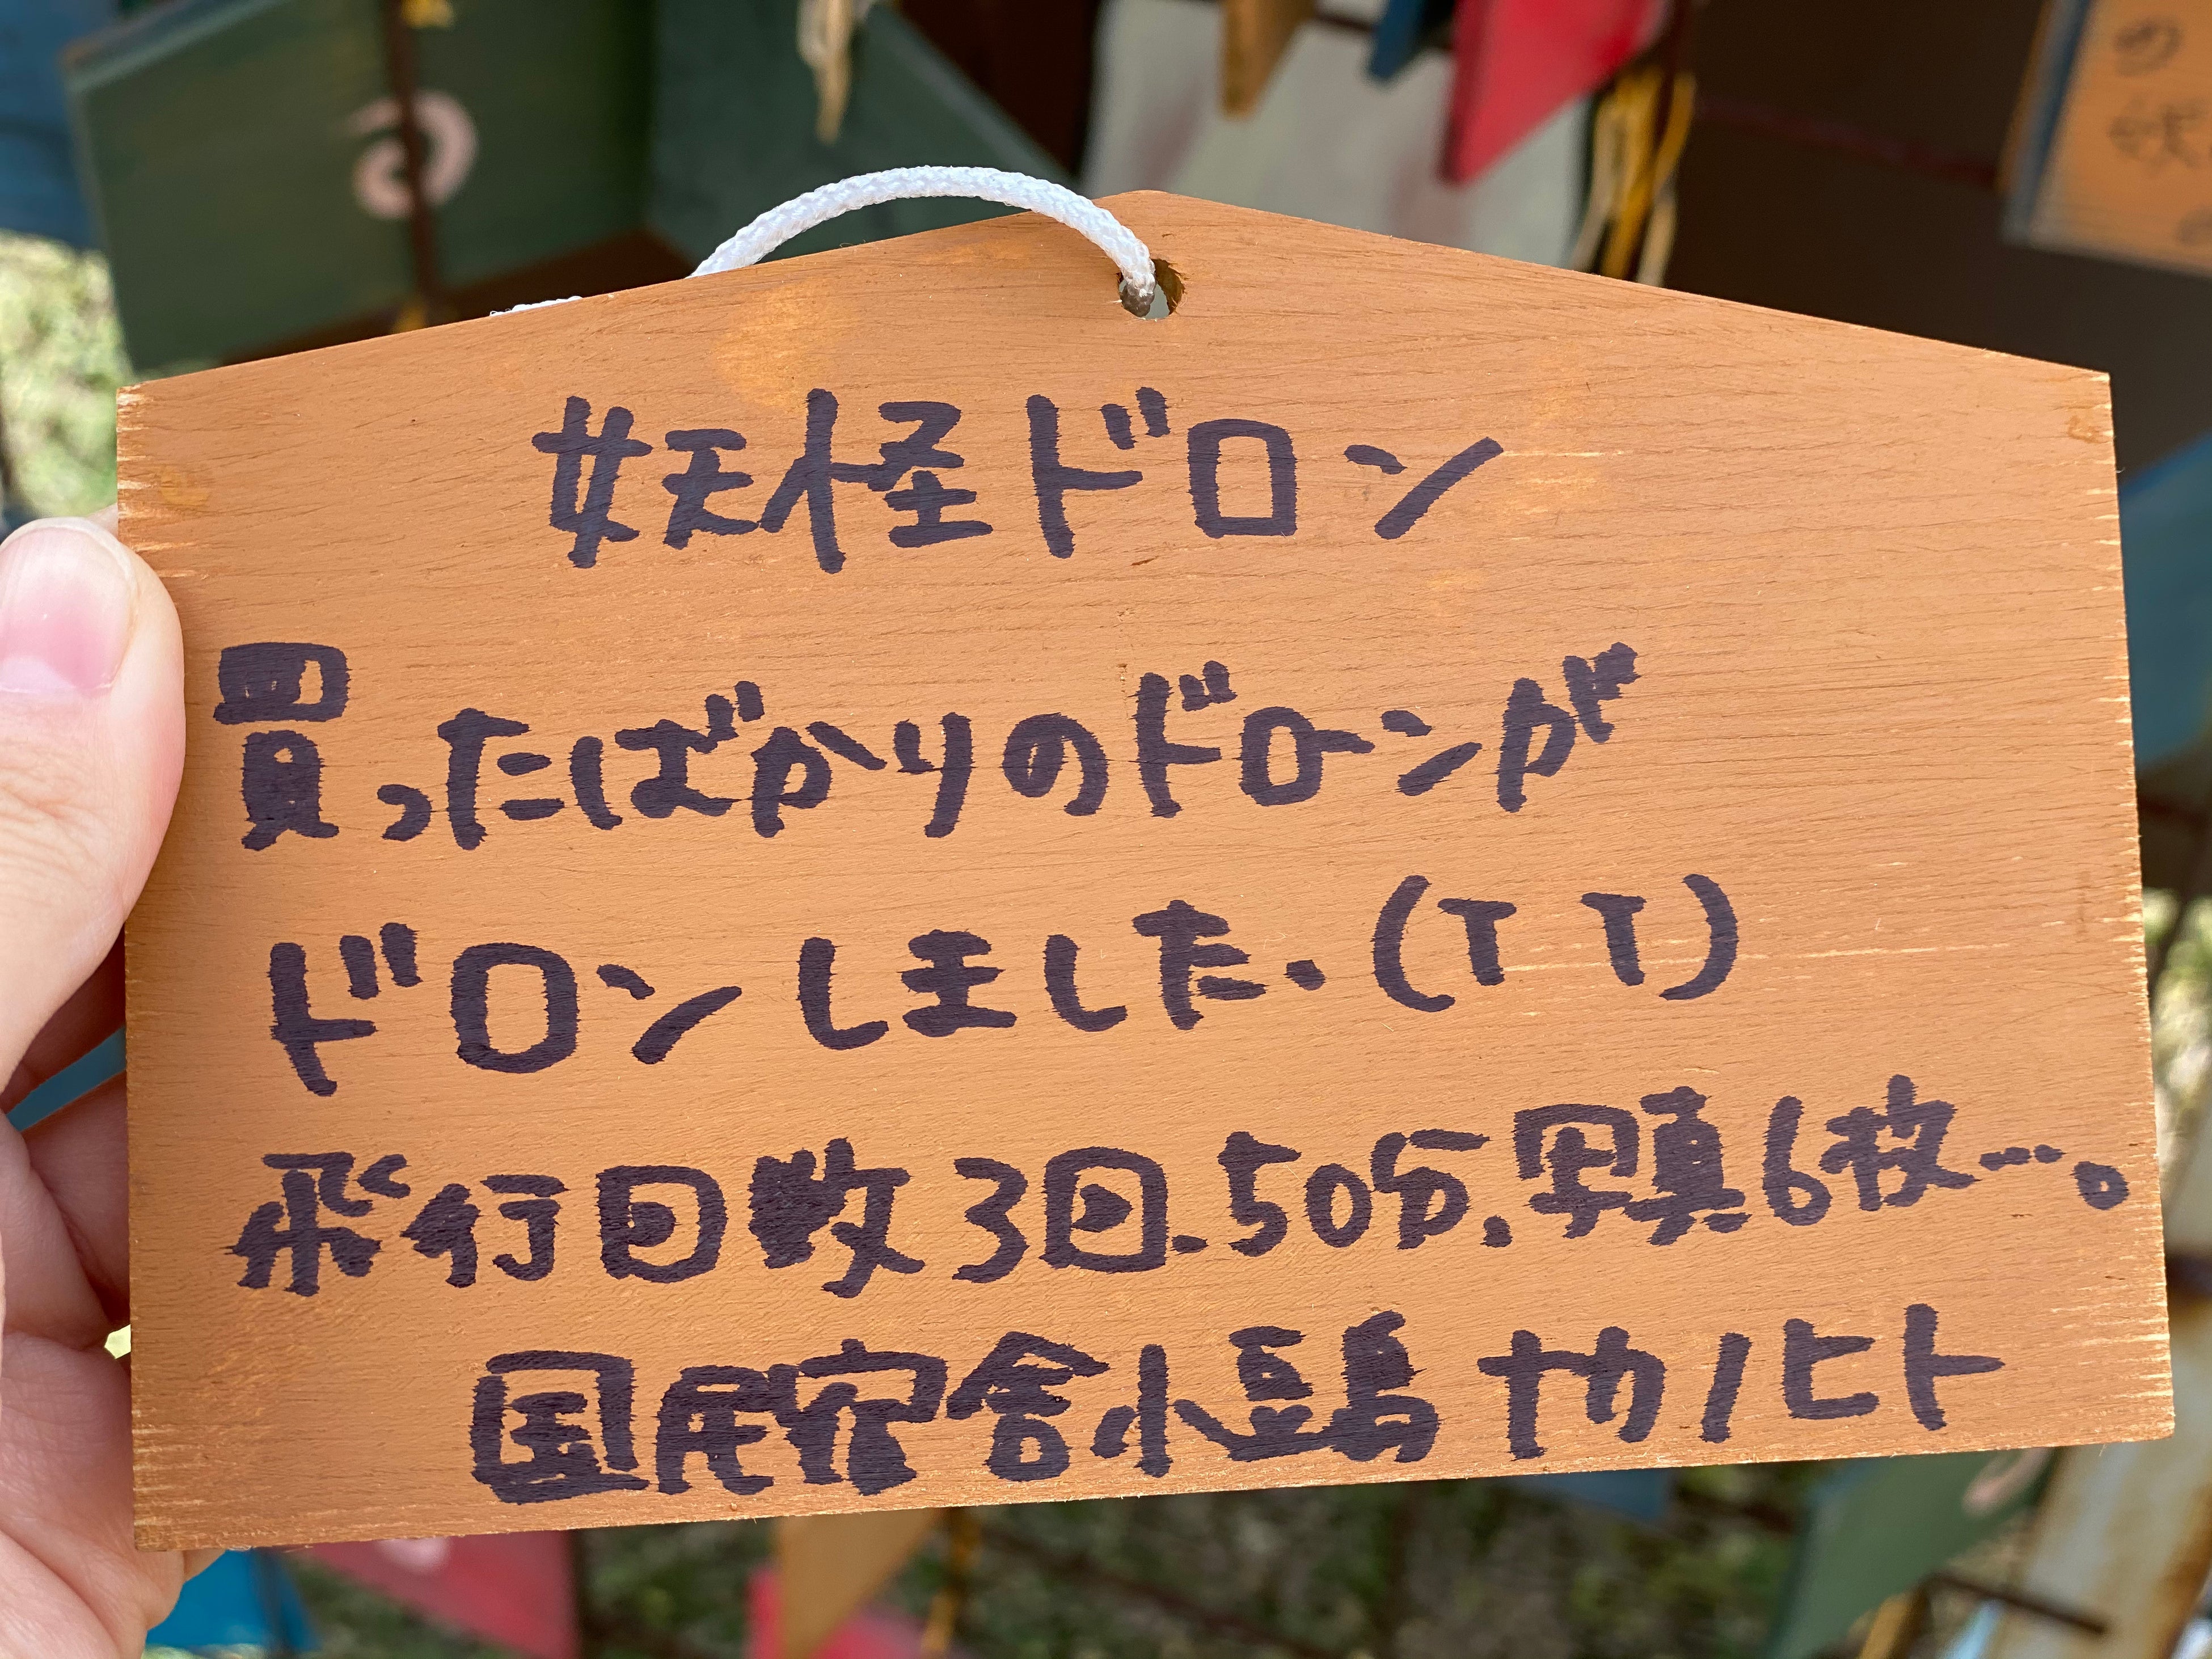 妖怪ドロン
買ったばかりのドローンが
ドロンしました.(T T)
飛行回数3回.50分.写真6枚…。
国民宿舎小豆島 ナカノヒト
の
妖